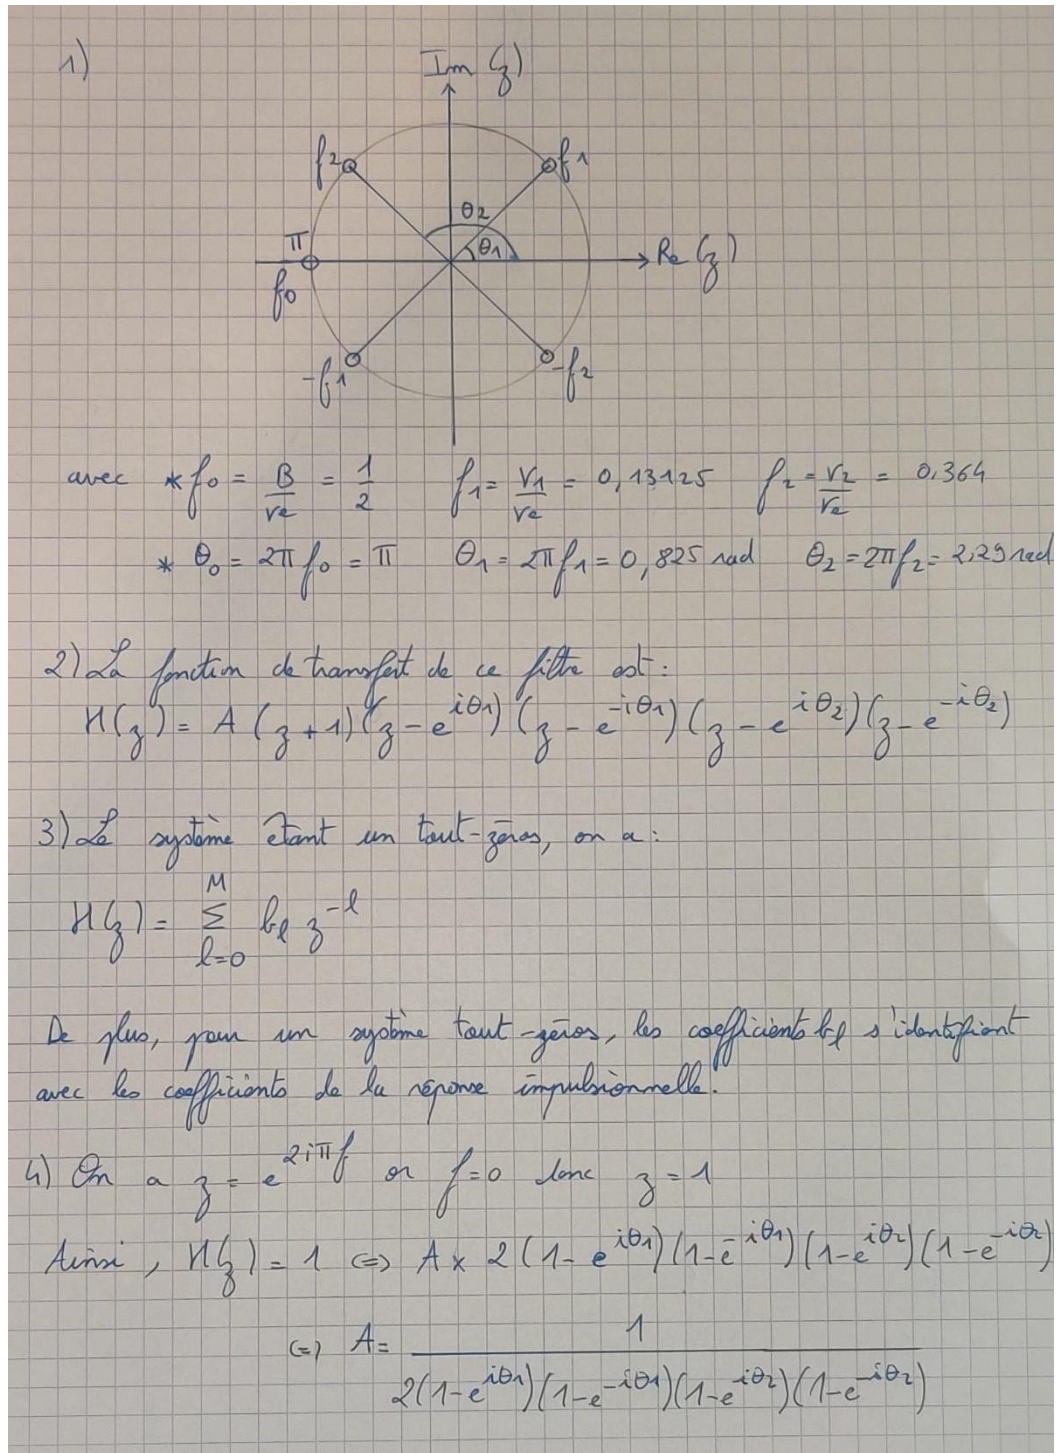 1)
Im(z)
f2
f1
θ2
π
θ1
Re(z)
f0
-f1
-f2
avec * f0 = B/νe = 1/2 f1 = ν1/νe = 0,13125 f2 = ν2/νe = 0,364
* θ0 = 2πf0 = π θ1 = 2πf1 = 0,825 rad θ2 = 2πf2 = 2,29 rad
2) La fonction de transfert de ce filtre est :
H(z) = A (z+1)(z - e^{iθ1})(z - e^{-iθ1})(z - e^{iθ2})(z - e^{-iθ2})
3) Le système étant un tout-zéros, on a :
H(z) = Σ_{l=0}^{M} b_l z^{-l}
De plus, pour un système tout-zéros, les coefficients b_l s'identifient
avec les coefficients de la réponse impulsionnelle.
4) On a z = e^{2iπf} or f=0 donc z=1
Ainsi, H(z) = 1 <=> A x 2(1 - e^{iθ1})(1 - e^{-iθ1})(1 - e^{iθ2})(1 - e^{-iθ2})
(=) A = 1/(2(1-e^{iθ1})(1-e^{-iθ1})(1-e^{iθ2})(1-e^{-iθ2}))